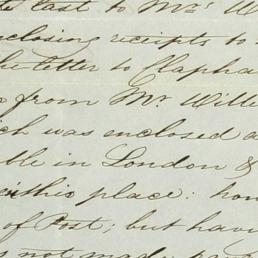 last to Mrs. W
nclosing receipts to
he letter to Clapha
from Mr. Wille
ich was enclosed a
ble in London &
this place: how
of Post; but havi
s not made